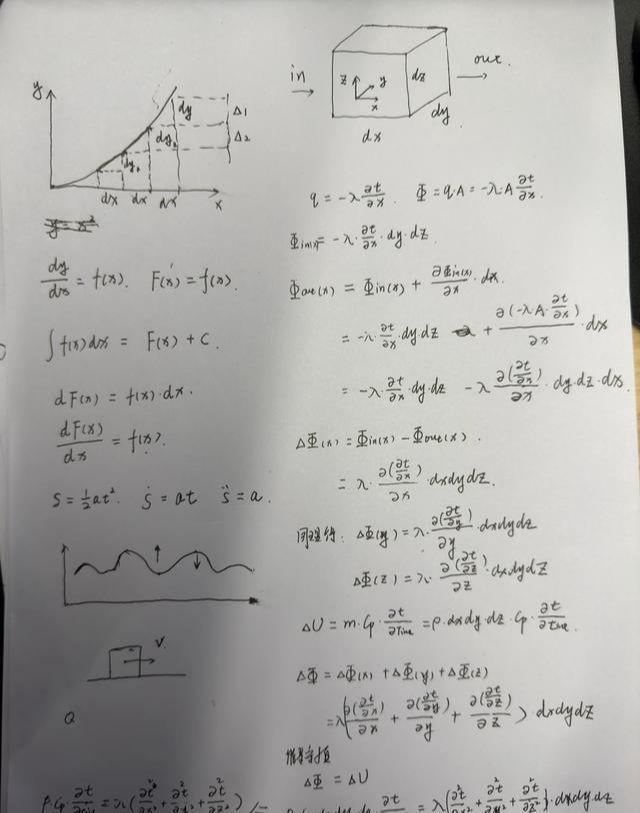 y
dy
dy₂
dy₁
Δ1
Δ2
dx dx dx x
y = x²
dy/dx = f(x). F'(x) = f(x).
∫f(x)dx = F(x) + C.
dF(x) = f(x)·dx.
dF(x)/dx = f(x).
S = ½at². ṡ = at s̈ = a.
V.
a
in
out.
z y x
dz
dy
dx
q = -λ ∂t/∂x. Φ = q·A = -λ·A ∂t/∂x.
Φin(x) = -λ·∂t/∂x·dy·dz.
Φout(x) = Φin(x) + ∂Φin(x)/∂x·dx.
= -λ·∂t/∂x·dy·dz + ∂(-λA·∂t/∂x)/∂x·dx
= -λ·∂t/∂x·dy·dz -λ ∂(∂t/∂x)/∂x·dy·dz·dx.
ΔΦ(x) = Φin(x) - Φout(x).
= λ·∂(∂t/∂x)/∂x·dxdydz.
同理得: ΔΦ(y) = λ·∂(∂t/∂y)/∂y·dxdydz
ΔΦ(z) = λ·∂(∂t/∂z)/∂z·dxdydz
ΔU = m·Cp·∂t/∂Time = ρ·dxdy·dz·Cp·∂t/∂time.
ΔΦ = ΔΦ(x) + ΔΦ(y) + ΔΦ(z)
= λ(∂(∂t/∂x)/∂x + ∂(∂t/∂y)/∂y + ∂(∂t/∂z)/∂z) dxdydz
ΔΦ = ΔU
= λ(∂²t/∂x² + ∂²t/∂y² + ∂²t/∂z²)·dxdy·dz